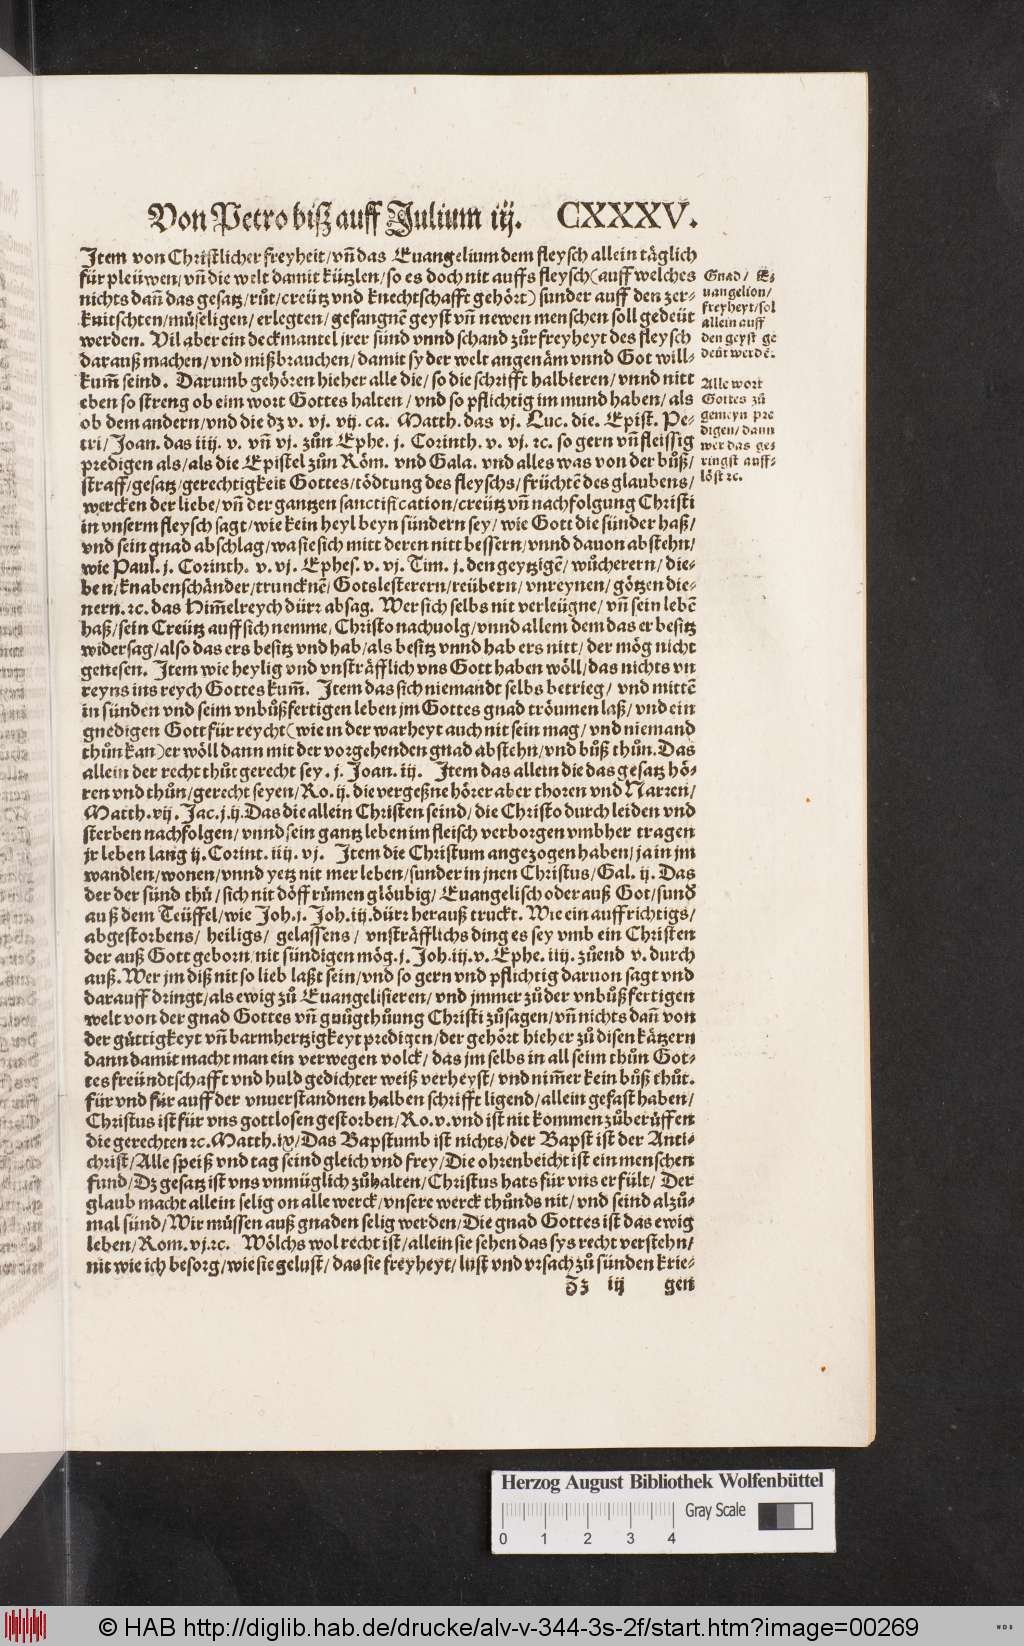 Von Petro biß auff Julium iij. CXXXV.
Item von Christlicher freyheit/vñ das Euangelium dem fleysch allein täglich
für pleüwen/vñ die welt damit kützlen/so es doch nit auffs fleysch (auff welches
nichts dañ das gesatz/rüt/creütz vnd knechtschafft gehört) sunder auff den zer-
knitschten/müseligen/erlegten/gefangnẽ geyst vñ newen menschen soll gedeüt
werden. Vil aber ein deckmantel jrer sünd vnnd schand zůr freyheyt des fleysch
darauß machen/vnd mißbrauchen/damit sy der welt angenäm vnnd Got will-
kum̃ seind. Darumb gehören hieher alle die/so die schrifft halbieren/vnnd nitt
eben so streng ob eim wort Gottes halten/vnd so pflichtig im mund haben/als
ob dem andern/vnd die dz v. vj. vij. ca. Matth. das vj. Luc. die. Epist. Pe-
tri/Joan. das iiij. v. vñ vj. zůn Ephe. j. Corinth. v. vj. ꝛc. so gern vñ fleissig
predigen als/als die Epistel zůn Röm. vnd Gala. vnd alles was von der bůß/
straff/gesatz/gerechtigkeit Gottes/tödtung des fleyschs/früchtẽ des glaubens/
wercken der liebe/vñ der gantzen sanctification/creütz vñ nachfolgung Christi
in vnserm fleysch sagt/wie kein heyl beyn sündern sey/wie Gott die sünder haß/
vnd sein gnad abschlag/wa sie sich mitt deren nitt bessern/vnnd dauon abstehn/
wie Paul. j. Corinth. v. vj. Ephes. v. vj. Tim. j. den geytzigẽ/wůcherern/die-
ben/knabenschänder/truncknẽ/Gotslesterern/reübern/vnreynen/götzen die-
nern. ꝛc. das Him̃elreych dürꝛ absag. Wer sich selbs nit verleügne/vñ sein lebẽ
haß/sein Creütz auff sich nemme, Christo nachuolg/vnnd allem dem das er besitz
widersag/also das ers besitz vnd hab/als besitz vnnd hab ers nitt/der mög nicht
genesen. Item wie heylig vnd vnsträfflich vns Gott haben wöll/das nichts vn
reyns ins reych Gottes kum̃. Item das sich niemandt selbs betrieg/vnd mittẽ
in sünden vnd seim vnbůßfertigen leben jm Gottes gnad tröumen laß/vnd ein
gnedigen Gott für reycht (wie in der warheyt auch nit sein mag/vnd niemand
thůn kan) er wöll dann mit der vorgehenden gnad abstehn/vnd bůß thůn. Das
allein der recht thůt gerecht sey. j. Joan. iij. Item das allein die das gesatz hö-
ren vnd thůn/gerecht seyen/Ro. ij. die vergeßne hörer aber thoren vnd Narren/
Matth. vij. Jac. j. ij. Das die allein Christen seind/die Christo durch leiden vnd
sterben nachfolgen/vnnd sein gantz leben im fleisch verborgen vmbher tragen
jr leben lang ij. Corint. iiij. vj. Item die Christum angezogen haben/ja in jm
wandlen/wonen/vnnd yetz nit mer leben/sunder in jnen Christus/Gal. ij. Das
der der sünd thů/sich nit döff rümen glöubig/Euangelisch oder auß Got/sund̛
auß dem Teüffel/wie Joh. j. Joh. iij. dürꝛ herauß truckt. Wie ein auffrichtigs/
abgestorbens/heiligs/gelassens/vnsträfflichs ding es sey vmb ein Christen
der auß Gott geborn/nit sündigen mög. j. Joh. iij. v. Ephe. iiij. zůend v. durch
auß. Wer jm diß nit so lieb laßt sein/vnd so gern vnd pflichtig daruon sagt vnd
darauff dringt/als ewig zů Euangelisieren/vnd jmmer zů der vnbůßfertigen
welt von der gnad Gottes vñ gnůgthůung Christi zůsagen/vñ nichts dañ von
der güttigkeyt vñ barmhertzigkeyt predigen/der gehört hieher zů disen kätzern
dann damit macht man ein verwegen volck/das jm selbs in all seim thůn Got-
tes freündtschafft vnd huld gedichter weiß verheyst/vnd nim̃er kein bůß thůt.
für vnd für auff der vnuerstandnen halben schrifft ligend/allein gefast haben/
Christus ist für vns gottlosen gestorben/Ro. v. vnd ist nit kommen zůberüffen
die gerechten ꝛc. Matth. ix/Das Bapstumb ist nichts/der Bapst ist der Anti-
christ/Alle speiß vnd tag seind gleich vnd frey/Die ohrenbeicht ist ein menschen
fund/Dz gesatz ist vns vnmüglich zůhalten/Christus hats für vns erfült/Der
glaub macht allein selig on alle werck/vnsere werck thůnds nit/vnd seind alzů-
mal sünd/Wir müssen auß gnaden selig werden/Die gnad Gottes ist das ewig
leben/Rom. vj. ꝛc. Wölchs wol recht ist/allein sie sehen das sys recht verstehn/
nit wie ich besorg/wie sie gelust/das sie freyheyt/lust vnd vrsach zů sünden krie-
Zz iij gen
Gnad/E-
uangelion/
freyheyt/sol
allein auff
den geyst ge
deüt werdẽ.
Alle wort
Gottes zů
gemeyn pre
digen/dann
wer das ge-
ringst auff-
löst ꝛc.
Herzog August Bibliothek Wolfenbüttel
Gray Scale
0 1 2 3 4
© HAB http://diglib.hab.de/drucke/alv-v-344-3s-2f/start.htm?image=00269